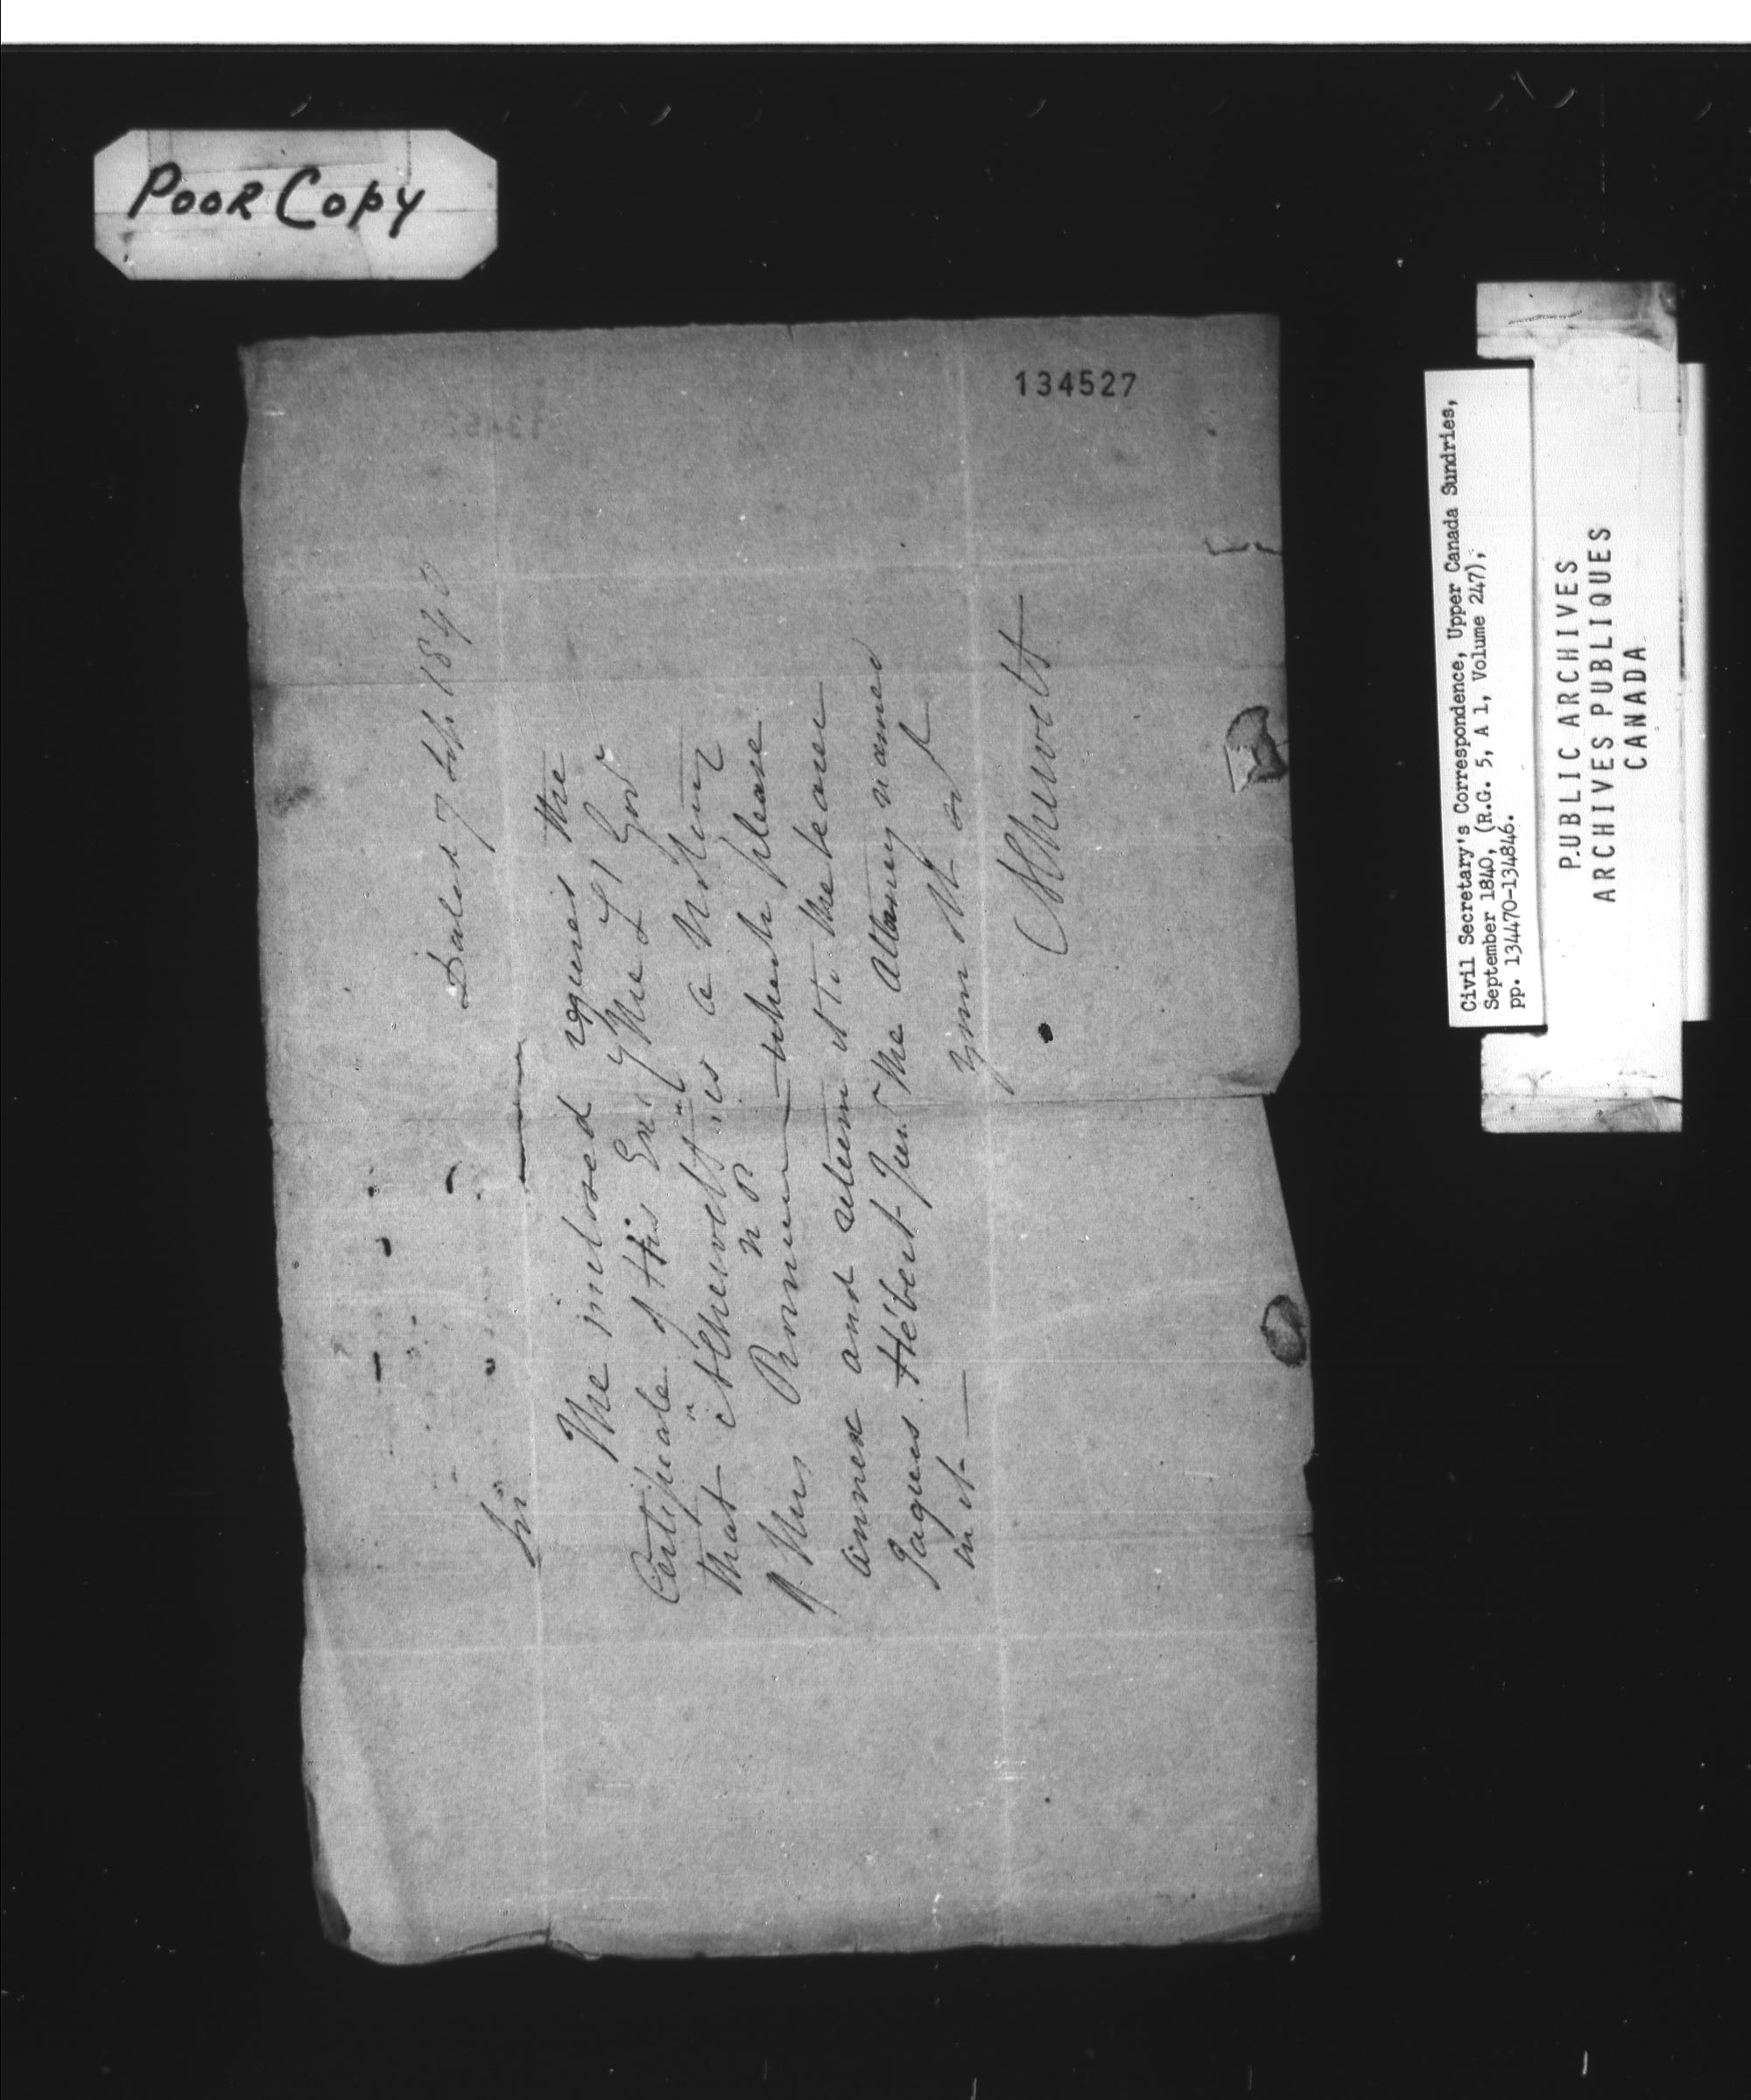 POOR COPY
134527
7 Sept 1840
Sir
The inclosed requires the
Certificate of His Excy the Lt Govr
that is a Notary
of this Province which please
annex and return it to the bearer
Jaques Hébert Junr the Attorney named
in it
Your St
Civil Secretary's Correspondence, Upper Canada Sundries,
September 1840, (R.G. 5, A 1, Volume 247),
pp. 134470-134846.
PUBLIC ARCHIVES
ARCHIVES PUBLIQUES
CANADA